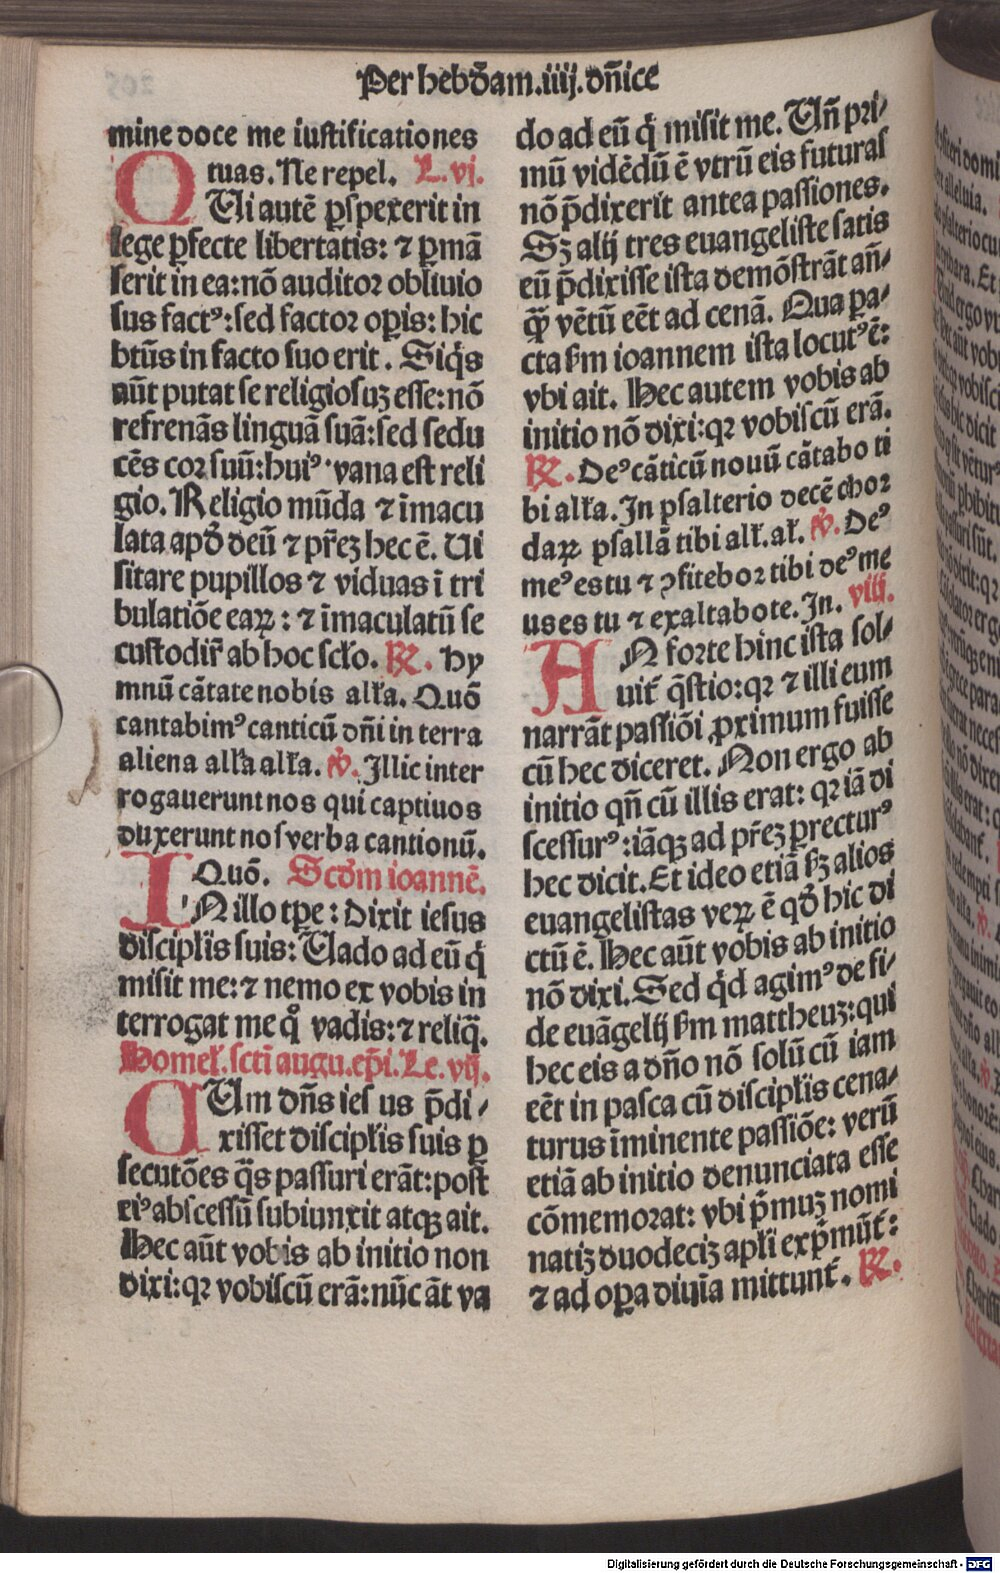 Per hebdōam.iiij.dn̄ice
mine doce me iustificationes
tuas. Ne repel. L.vj.
QUi autē ꝑspexerit in
lege ꝑfecte libertatis: ⁊ ꝑmā
serit in ea:nō auditor obliuio
sus factꝰ:sed factor oꝑis: hic
btūs in facto suo erit. Siq̄s
aūt putat se religiosuꝫ esse:nō
refrenās linguā suā:sed sedu
cēs cor suū:huiꝰ vana est reli
gio. Religio mūda ⁊ īmacu
lata apđ deū ⁊ pr̄eꝫ hec ē. Ui
sitare pupillos ⁊ viduas ī tri
bulatiōe eaꝝ: ⁊ īmaculatū se
custodir̄ ab hoc scło. ℟. Hy
mnū cātate nobis alła. Quō
cantabimꝰ canticū dn̄i in terra
aliena alła alła. ℣. Illic inter
rogauerunt nos qui captiuos
duxerunt nos verba cantionū.
Quō. Scđm ioannē.
IN illo tꝑe: Dixit iesus
discipłis suis: Uado ad eū q̇
misit me: ⁊ nemo ex vobis in
terrogat me qͦ vadis: ⁊ reliq̄.
Homeł. scti augu.ep̄i. Le. vij.
CUm dn̄s iesus p̄di⸗
xisset discipłis suis ꝑ
secutōes q̄s passuri erāt: post
eiꝰ abscessū subiunxit atqꝫ ait.
Hec aūt vobis ab initio non
dixi: qꝛ vobiscū erā: nūc āt va
do ad eū q̇ misit me. Un̄ pri⸗
mū vidēdū ē vtrū eis futuras
nō p̄dixerit antea passiones.
Sꝫ alij tres euangeliste satis
eū p̄dixisse ista demōstrāt an̄⸗
qꝫ̄ vētū eēt ad cenā. Qua pa⸗
cta ẜm ioannem ista locutꝰ ē:
vbi ait. Hec autem vobis ab
initio nō dixi: qꝛ vobiscū erā.
℟. Deꝰ cāticū nouū cātabo ti
bi alła. In psalterio decē chor
daꝝ psallā tibi alł. ał. ℣. Deꝰ
meꝰ es tu ⁊ ꝯfitebor tibi deꝰ me
us es tu ⁊ exaltabo te. In. viij.
AN forte hinc ista sol⸗
uit̄ q̄stio: qꝛ ⁊ illi eum
narrāt passiōi ꝓximum fuisse
cū hec diceret. Non ergo ab
initio qn̄ cū illis erat: qꝛ iā di
scessurꝰ: iāqꝫ ad pr̄eꝫ ꝑrecturꝰ
hec dicit. Et ideo etiā ẜꝫ alios
euangelistas veꝝ ē qđ hic di
ctū ē. Hec aūt vobis ab initio
nō dixi. Sed q̇d agimꝰ de fi⸗
de euāgelij ẜm mattheuꝫ: qui
hec eis a dn̄o nō solū cū iam
eēt in pasca cū discipłis cena⸗
turus īminente passiōe: verū
etiā ab initio denunciata esse
cōmemorat: vbi p̄muꝫ nomi
natiꝫ duodeciꝫ apłi exp̄mūt̄:
⁊ ad oꝑa diuīa mittunt̄. ℟.
Digitalisierung gefördert durch die Deutsche Forschungsgemeinschaft - DFG